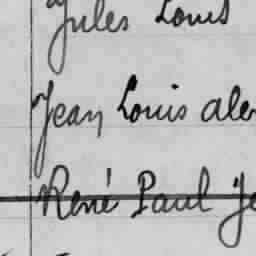 Jules Louis
Jean Louis ale
René Paul Je